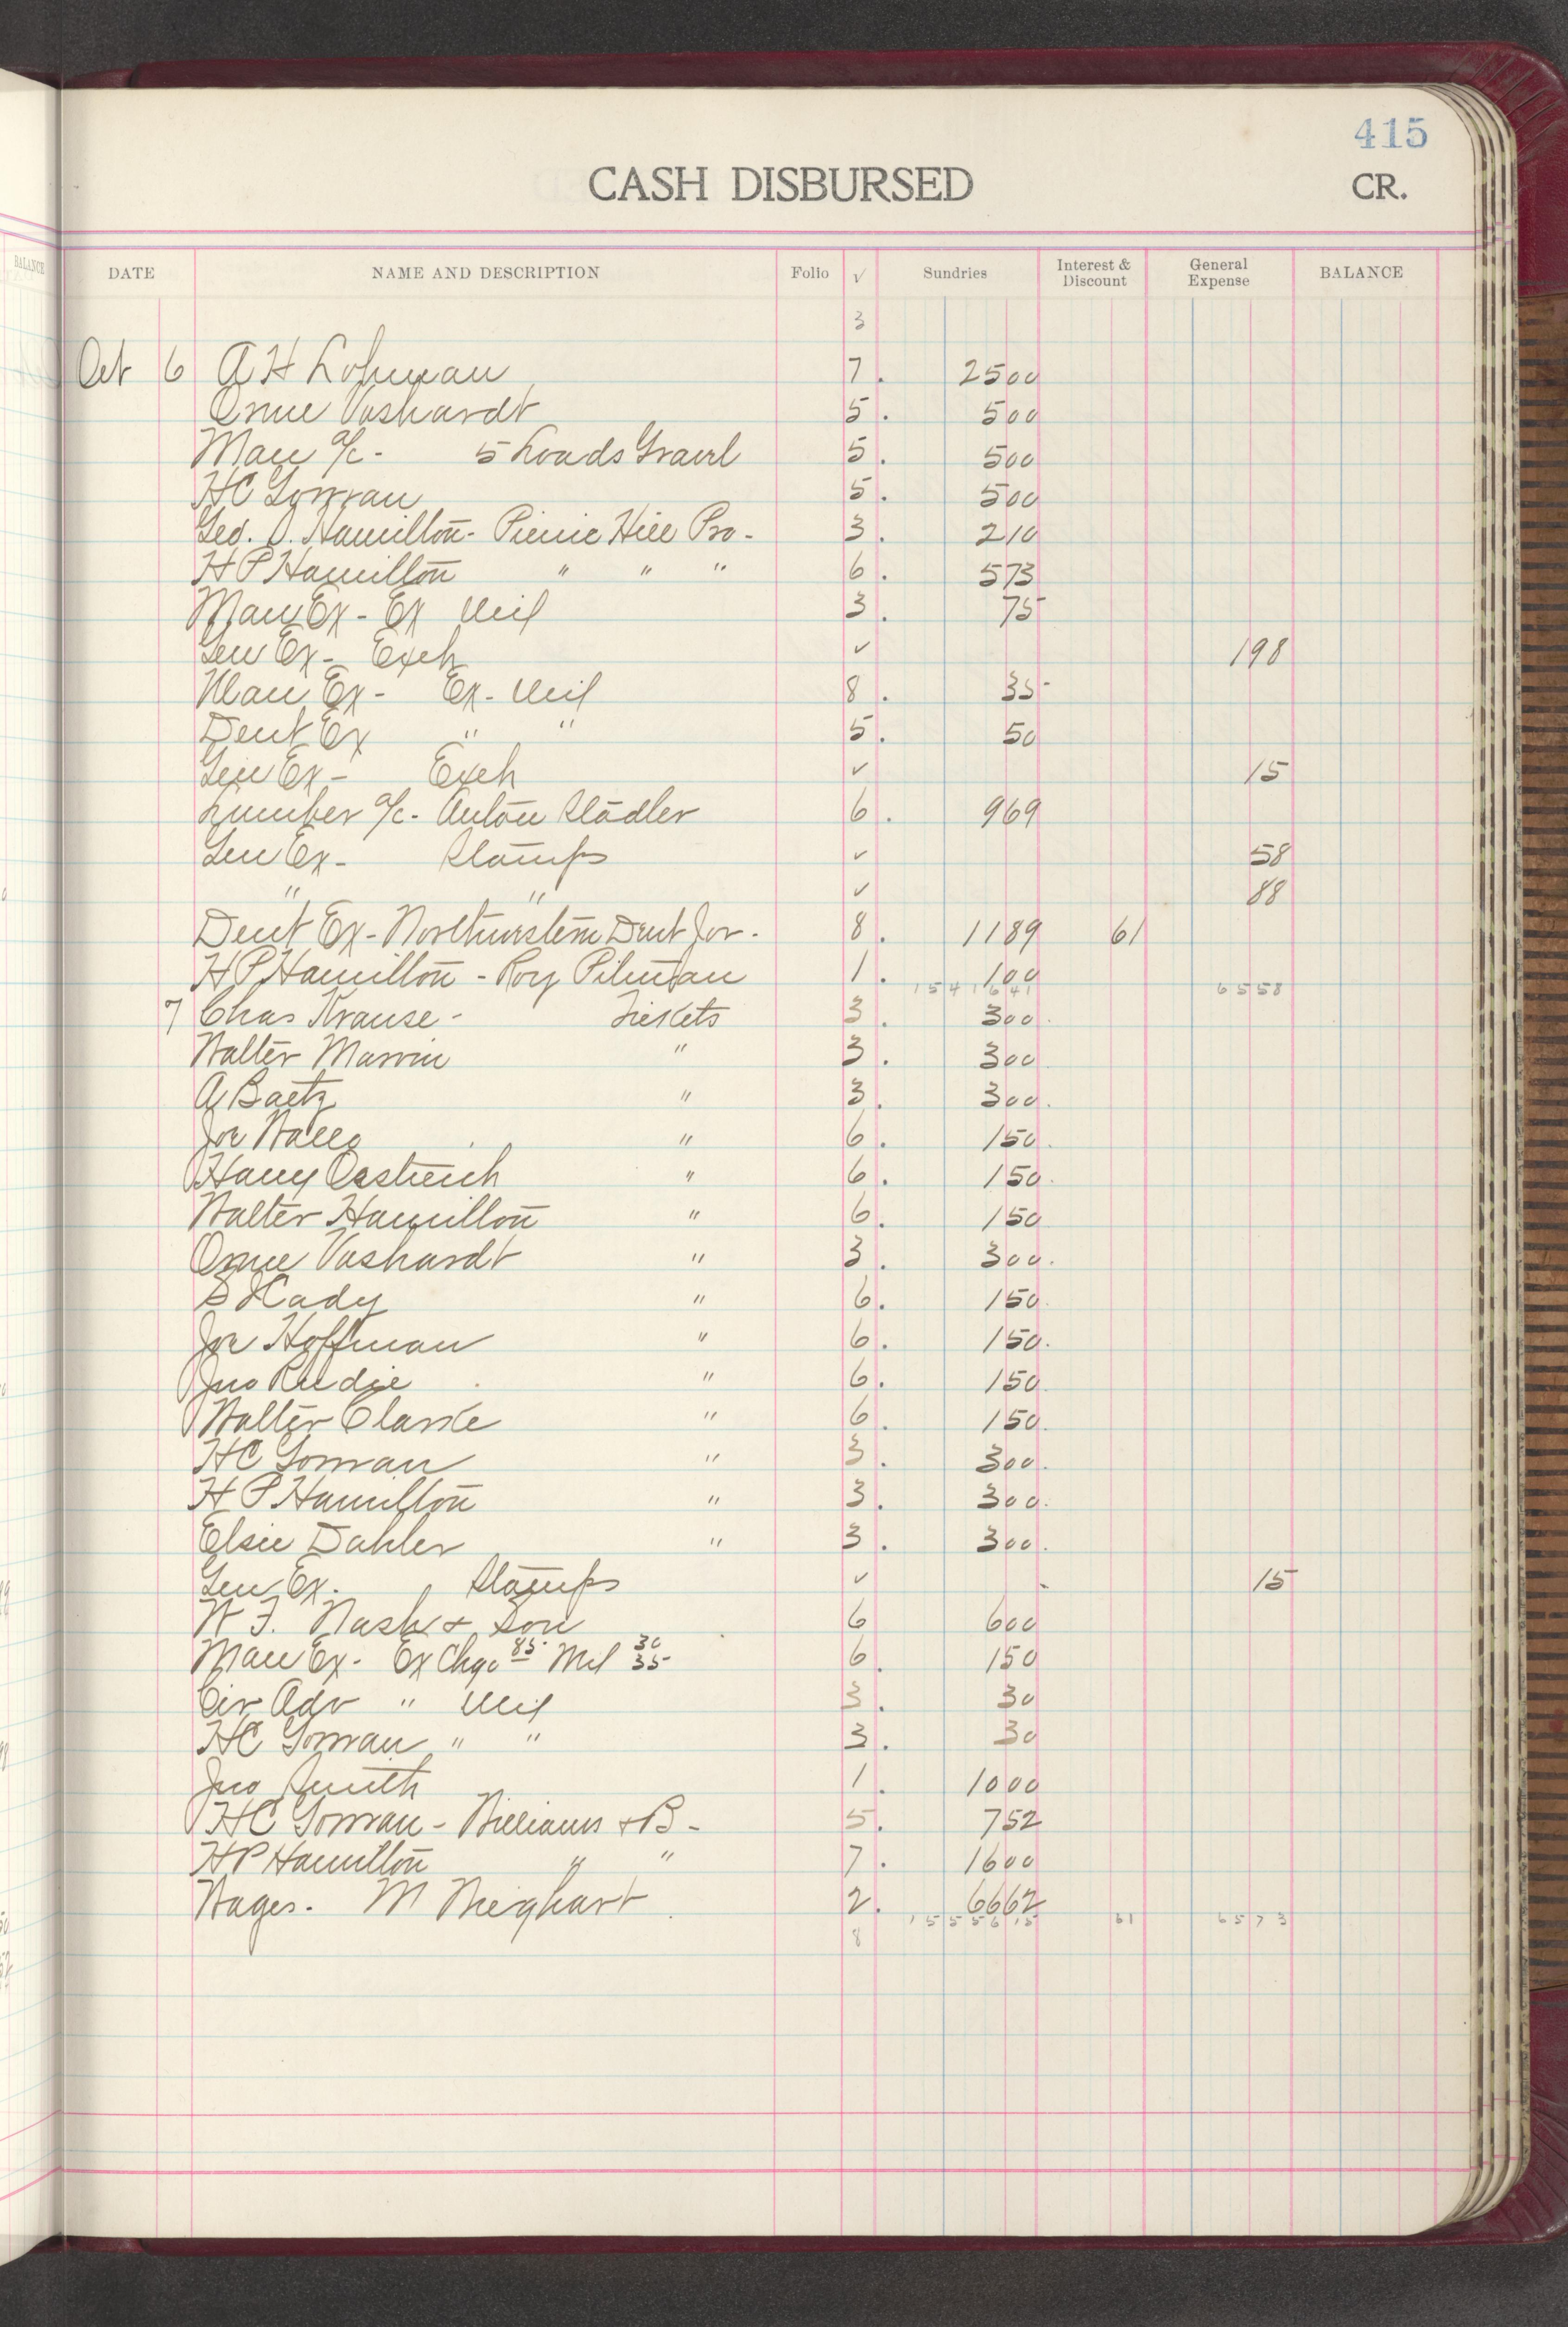 415
CASH DISBURSED CR.
BALANCE DATE NAME AND DESCRIPTION Folio ✓ Sundries Interest & Discount General Expense BALANCE
3
Oct 6 A H Lohman 7. 2500
Orme Vashardt 5. 500
Man a/c - 5 Loads Gravel 5. 500
HC Gowran 5. 500
Geo. O. Hamilton - Picnic Hill Pro - 3. 210
H P Hamilton " " " 6. 573
Man Ex - Ex Mil 3. 75
Gen Ex - Exch ✓ 198
Man Ex - Ex - Mil 8. 35
Dent Ex " " 5. 50
Gen Ex - Exch ✓ 15
Lumber a/c - Anton Stadler 6. 969
Gen Ex - Stamps ✓ 58
" " ✓ 88
Dent Ex - Northwestern Dent Jor - 8. 1189 61
H P Hamilton - Roy Pitman 1. 100
1541641 6558
7 Chas Krause - Tickets 3. 300
Walter Marvin " 3. 300
A Baetz " 3. 300
Joe " 6. 150
Harry Oestreich " 6. 150
Walter Hamilton " 6. 150
Orme Vashardt " 3. 300
Cady " 6. 150
Joe Hoffman " 6. 150
Jno " 6. 150
Walter Clarke " 6. 150
HC Gowran " 3. 300
H P Hamilton " 3. 300
Elsie Dahler " 3. 300
Gen Ex - Stamps ✓ 15
W F. Nash & Son 6 600
Man Ex - Ex Chgo 85 Mil 30 35 6. 150
Cir Adv " Mil 3. 30
HC Gowran " " 3. 30
Jno Smith 1. 1000
HC Gowran - Williams & B - 5. 752
HP Hamilton " " 7. 1600
Wages. M 2. 6662
1555615 61 6573
8